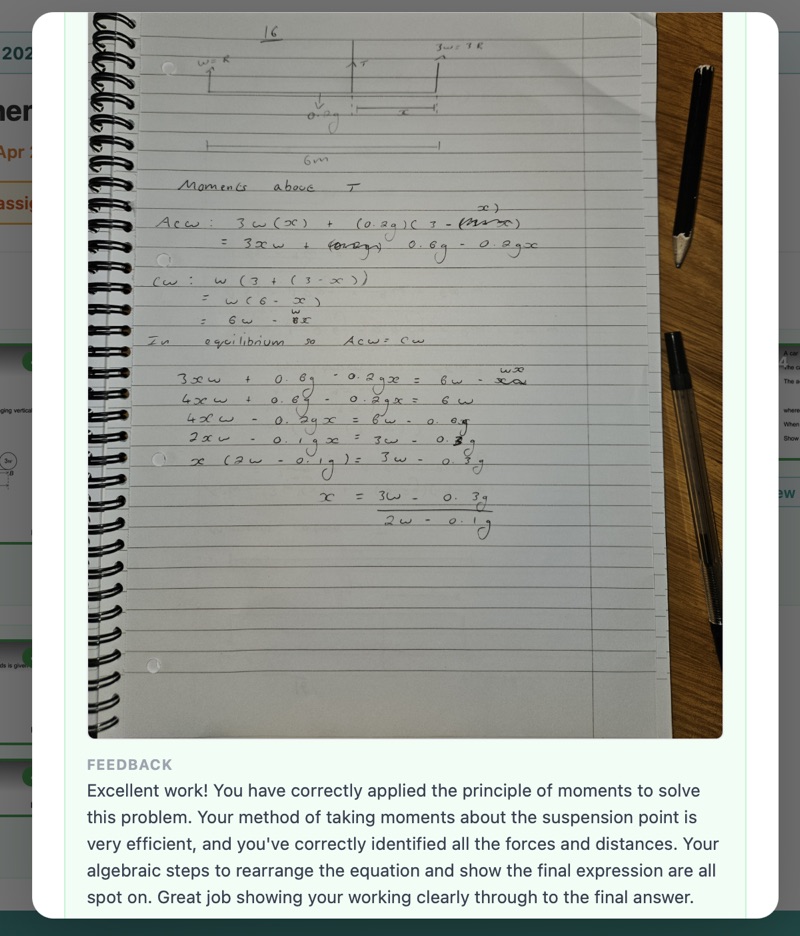 16
w = R
3w = 3R
T
0.2g
x
6m
Moments about T
x)
Acw : 3w(x) + (0.2g)(3 -
= 3xw + 0.6g - 0.2gx
Cw : w(3 + (3 - x))
= w(6 - x)
= 6w - wx
In equilibrium so Acw = Cw
3xw + 0.6g - 0.2gx = 6w - wx
4xw + 0.6g - 0.2gx = 6w
4xw - 0.2gx = 6w - 0.6g
2xw - 0.1gx = 3w - 0.3g
x (2w - 0.1g) = 3w - 0.3g
x = 3w - 0.3g
2w - 0.1g
FEEDBACK
Excellent work! You have correctly applied the principle of moments to solve
this problem. Your method of taking moments about the suspension point is
very efficient, and you've correctly identified all the forces and distances. Your
algebraic steps to rearrange the equation and show the final expression are all
spot on. Great job showing your working clearly through to the final answer.
202
Apr
assi